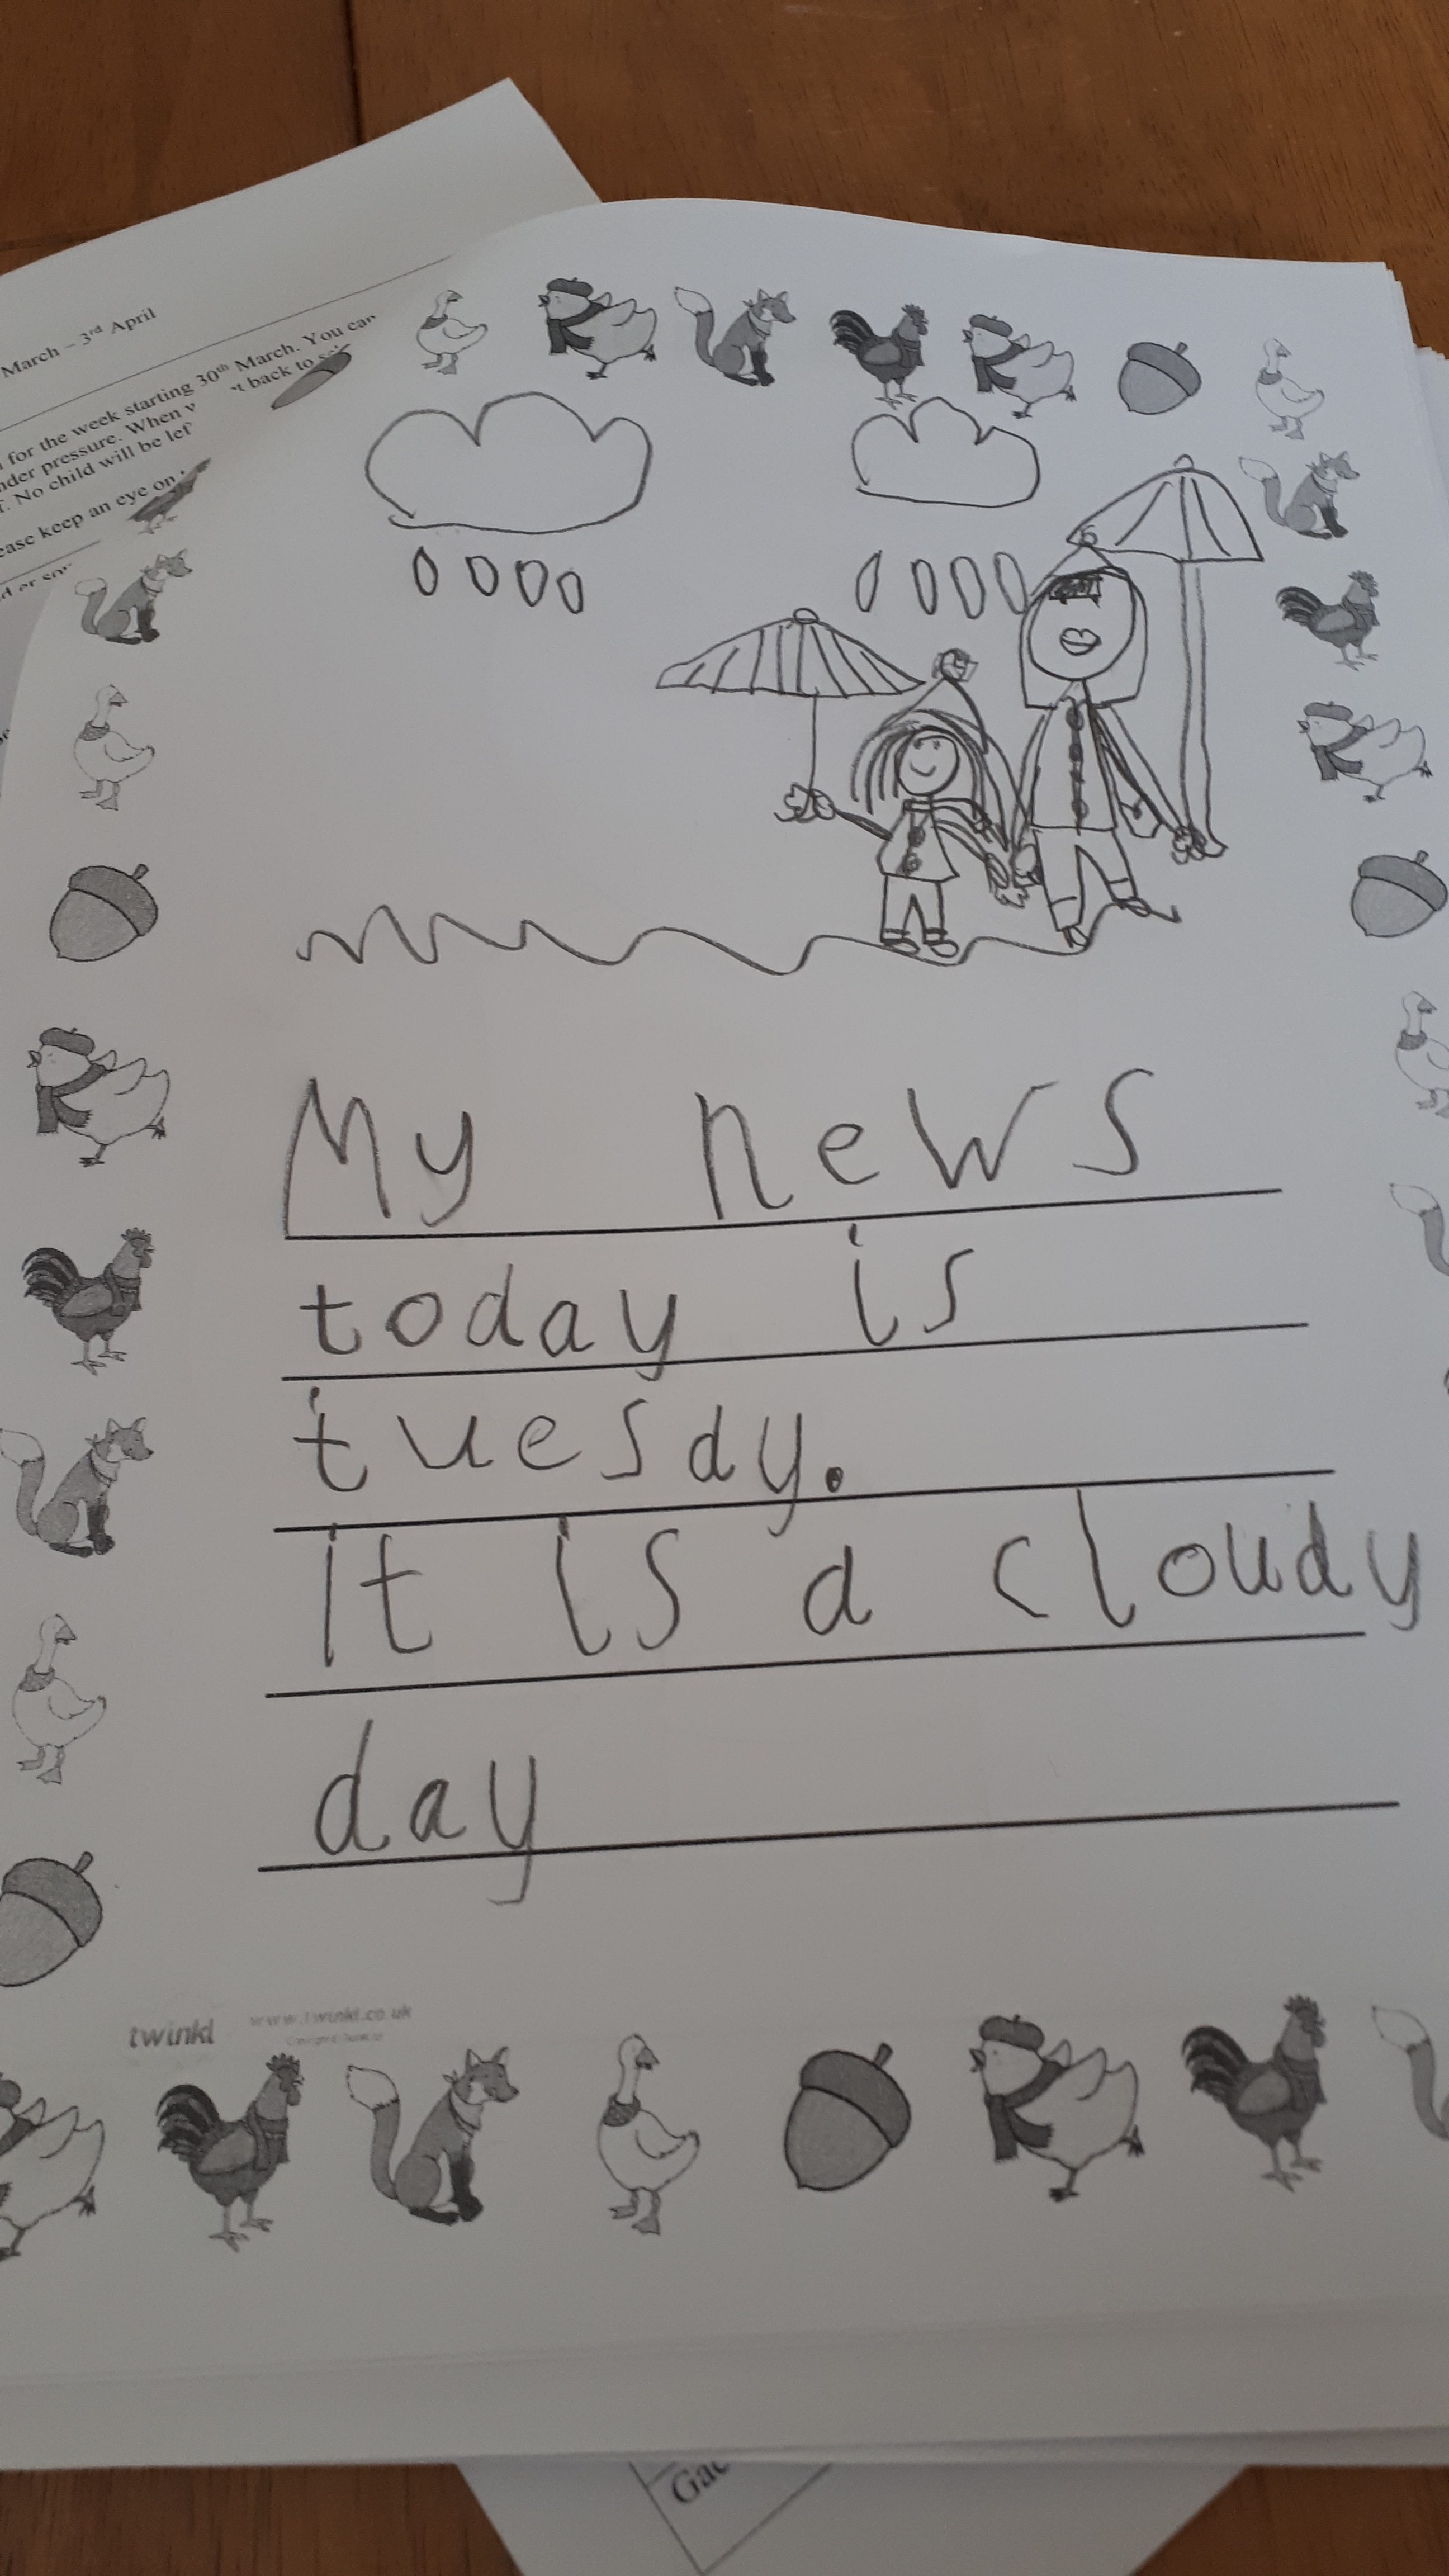 March – 3rd April
for the week starting 30th March. You can
nder pressure. When
't back to
No child will be lef
ease keep an eye on
My news
today is
tuesdy.
it is a cloudy
day
twinkl www.twinkl.co.uk
Gae